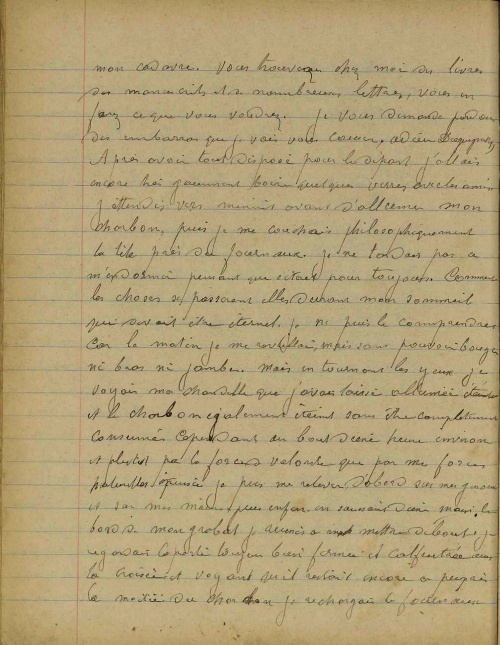 mon cadavre. Vous trouverez chez moi des livres
des manuscrits et de nombreuses lettres, vous en
ferez ce que vous voudrez. Je vous demande pardon
des embarras que je vais vous causer, adieu
Après avoir tout disposé pour le départ j'allais
encore très gaiement boire quelques verres avec les amis
J'attendis vers minuit avant d'allumer mon
charbon, puis je me couchais philosophiquement
la tête près du fourneaux. Je ne tardais pas a
m'endormir pensant que c'était pour toujours. Comment
les choses se passèrent elles durant mon sommeil
qui devait être éternel. Je ne puis le comprendre
Car le matin je me réveillai, mais sans pouvoir bouger
ni bras ni jambes. Mais en tournant les yeux je
voyais ma chandelle que j'avais laissé allumée éteinte
et le charbon également éteint sans être complètement
consumés Cependant au bout d'une heure environ
et plutot par la force de volonté que par me forces
épuisée je pus me relever d'abord sur mes genoux
et sur mes mains, puis enfin en saisissant d'une main le
bord de mon grabat je réussis a mettre debout. je
regardais la porte toujours bien fermée et calfeutrée avec
la croisée et voyant qu'il restait encore a peu près
la moitié du charbon je rechargeais le fourneaux